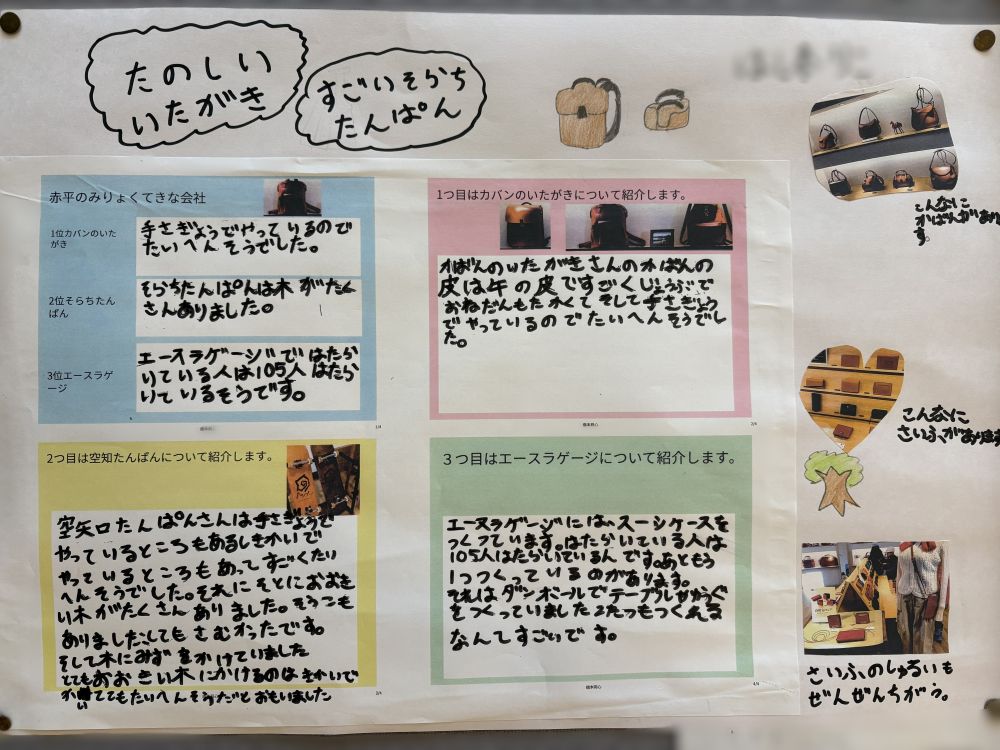 たのしい
いたがき
すごいそらち
たんぱん
こんなに
かばんがあり
す。
赤平のみりょくてきな会社
1位カバンのいた
がき
手さぎょうでやって いるので
たいへん そうでした。
2位そらちたん
ぱん
そらちたんぱんは木 がたく
さんありました。
3位エースラゲ
ージ
エースラゲージで はたら
いている人は105人 はたら
いて いるそうです。
1/4
1つ目はカバンのいたがきについて紹介します。
かばんのいた がき さんのかばんの
皮は牛の皮ですごくじょうぶで
おねだんもたかくて そして手さぎょう
でやっているので たいへん そうでし
た。
2/4
こんなに
さいふがあります
2つ目は空知たんぱんについて紹介します。
空矢口たん ぱんさんは手さぎょうで
やって いるところもあるしきかいで
やって いるところも あって すごくたい
へん そうでした。それに そとにおおき
い木 がたくさん ありました。そうこも
ありましたとてもさむかったです。
そして木にみず をかけていました
とてもおおきい木にかけるのは きかいで
かいててもたいへん そうだと おもいました
3/4
3つ目はエースラゲージについて紹介します。
エースラゲージには、スーシケースを
つくっています。はたらいている人は
105人はたらいているんです。あともう
1つつくっているのがあります。
それはダンボールでテーブルやかぐ
をつくっていました2たつもつくれる
なんてすごいです。
4/4
さいふのしゅるいも
ぜんぜんちがう。